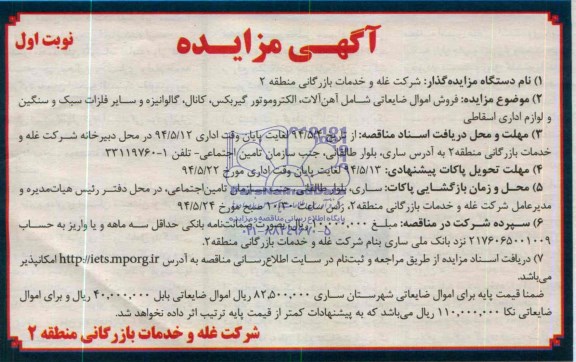 آگهی مزایده
نوبت اول
۱) نام دستگاه مزایده‌گذار: شرکت غله و خدمات بازرگانی منطقه ۲
۲) موضوع مزایده: فروش اموال ضایعاتی شامل آهن‌آلات، الکتروموتور گیربکس، کانال، گالوانیزه و سایر فلزات سبک و سنگین
و لوازم اداری اسقاطی
۳) مهلت و محل دریافت اسناد مناقصه: از تاریخ لغایت پایان وقت اداری ۹۴/۵/۱۲ در محل دبیرخانه شرکت غله و
خدمات بازرگانی منطقه۲ به آدرس ساری، بلوار طالقانی، جنب سازمان تامین اجتماعی- تلفن ۱-۳۳۱۱۹۷۶۰
۴) مهلت تحویل پاکات پیشنهادی: ۹۴/۵/۱۳ لغایت پایان وقت اداری مورخ ۹۴/۵/۲۲
۵) محل و زمان بازگشایی پاکات: ساری، بلوار طالقانی، جنب سازمان تامین‌اجتماعی، در محل دفتر رئیس هیات‌مدیره و
مدیرعامل شرکت غله و خدمات بازرگانی منطقه۲، راس ساعت ۱۰/۳۰ صبح مورخ ۹۴/۵/۲۴
۶) سپرده شرکت در مناقصه: مبلغ ریال بصورت ضمانت‌نامه بانکی حداقل سه ماهه و یا واریز به حساب
۲۱۷۶۰۶۵۰۰۱۰۰۹ نزد بانک ملی ساری بنام شرکت غله و خدمات بازرگانی منطقه۲.
۷) دریافت اسناد مزایده از طریق مراجعه و ثبت‌نام در سایت اطلاع‌رسانی مناقصه به آدرس http://iets.mporg.ir امکانپذیر
می‌باشد.
ضمنا قیمت پایه برای اموال ضایعاتی شهرستان ساری ۸۲,۵۰۰,۰۰۰ ریال اموال ضایعاتی بابل ۴۰,۰۰۰,۰۰۰ ریال و برای اموال
ضایعاتی نکا ۱۱۰,۰۰۰,۰۰۰ ریال می‌باشد که به پیشنهادات کمتر از قیمت پایه ترتیب اثر داده نخواهد شد.
شرکت غله و خدمات بازرگانی منطقه ۲
پایگاه اطلاع رسانی مناقصه و مزایده
۰۲۱-۸۸۳۴۹۶۷۰-۵